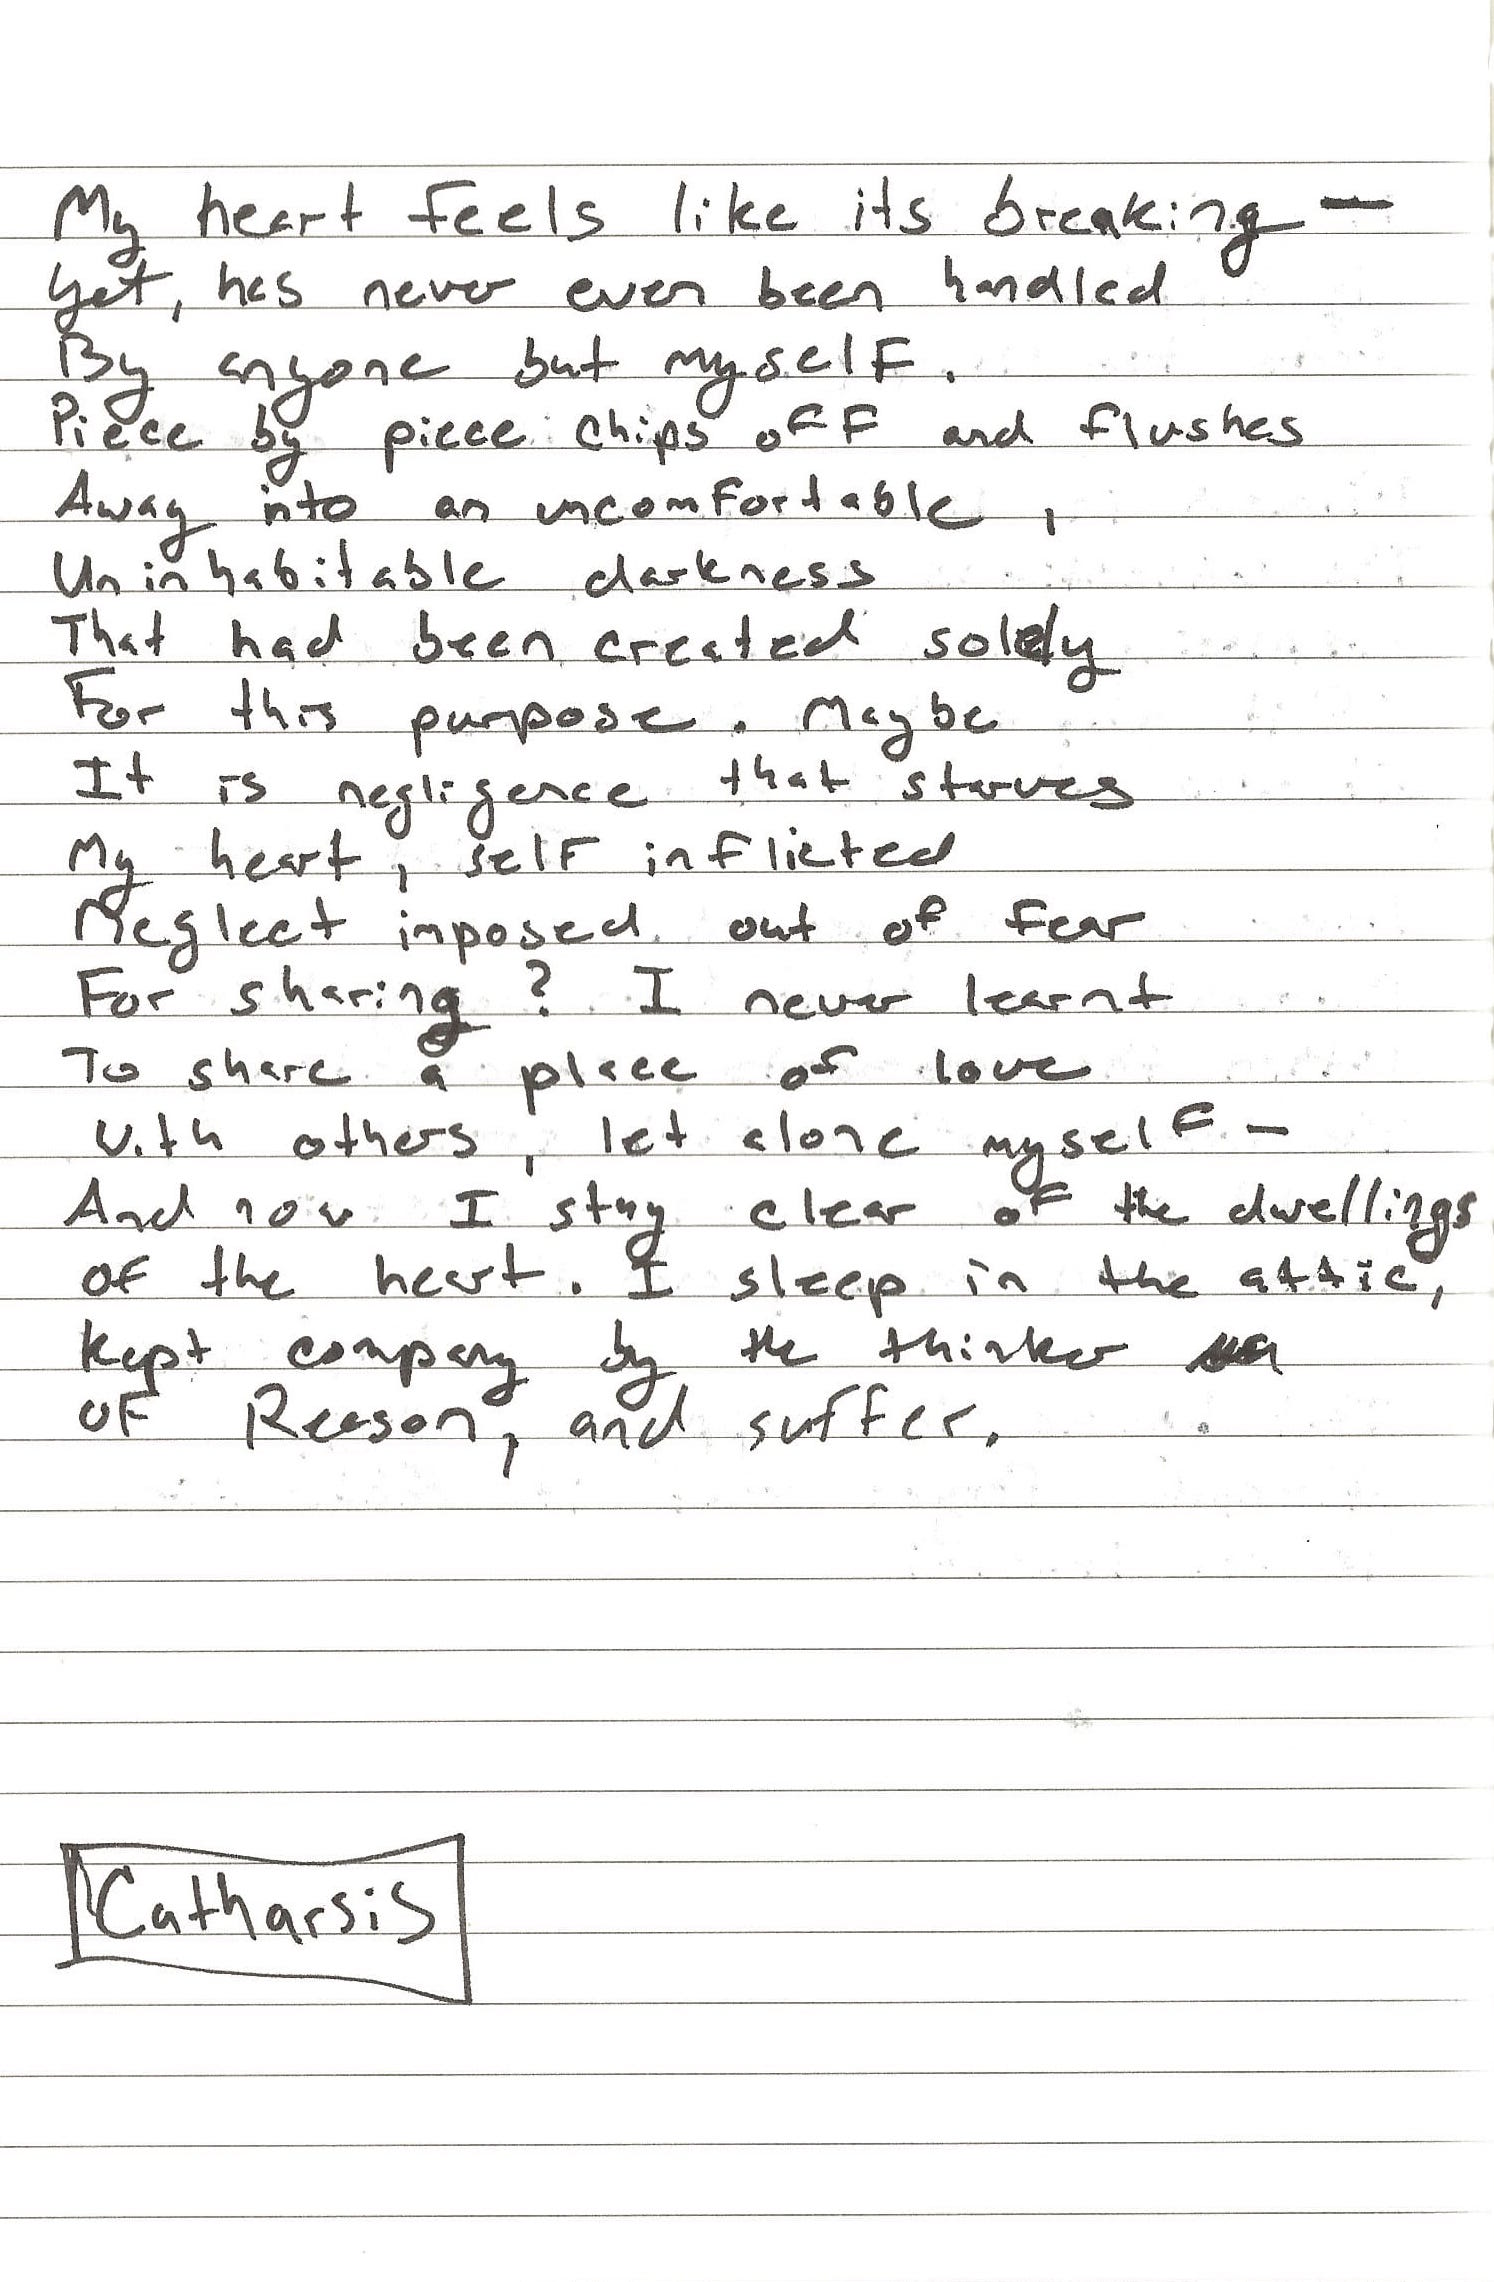 My heart feels like its breaking —
Yet, has never even been handled
By anyone but myself.
Piece by piece chips off and flushes
Away into an uncomfortable,
Uninhabitable darkness
That had been created solely
For this purpose. Maybe
It is negligence that starves
My heart, self inflicted
Neglect imposed out of fear
For sharing? I never learnt
To share a place of love
With others, let alone myself —
And now I stay clear of the dwellings
Of the heart. I sleep in the attic,
Kept company by the thinker
Of Reason, and suffer.
Catharsis